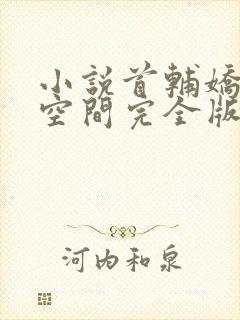 小說首輔嬌
空間完全版
河内和泉